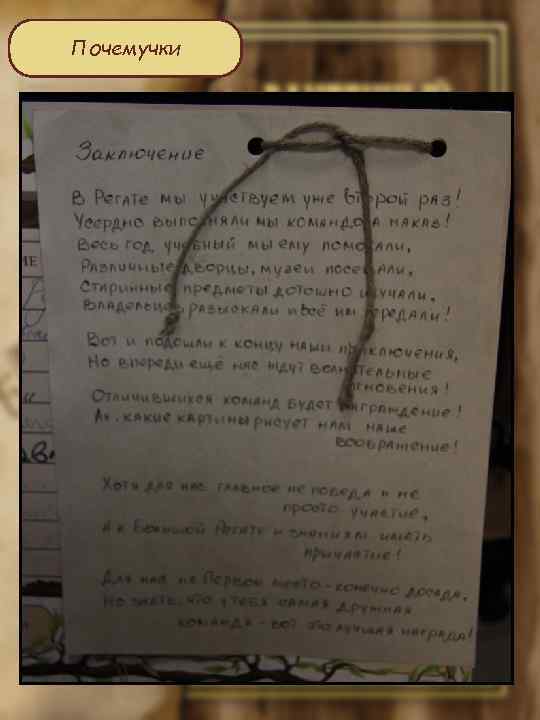 Почемучки
Заключение
В Регате мы участвуем уже второй раз!
Усердно выполняли мы командора наказ!
Весь год учебный мы ему помогали,
Различные дворцы, музеи посещали,
Старинные предметы дотошно изучали,
Владельцев разыскали и всё им передали!
Вот и подошли к концу наши приключения,
Но впереди ещё нас ждут волнительные
мгновения!
Отличившихся команд будет награждение!
Ах, какие картины рисует нам наше
воображение!
Хотя для нас главное не победа и не
просто участие,
А к Большой Регате и знаниям иметь
причастие!
Для нас не Первое место - конечно досада,
Но знать, что у тебя самая дружная
команда - вот это лучшая награда!